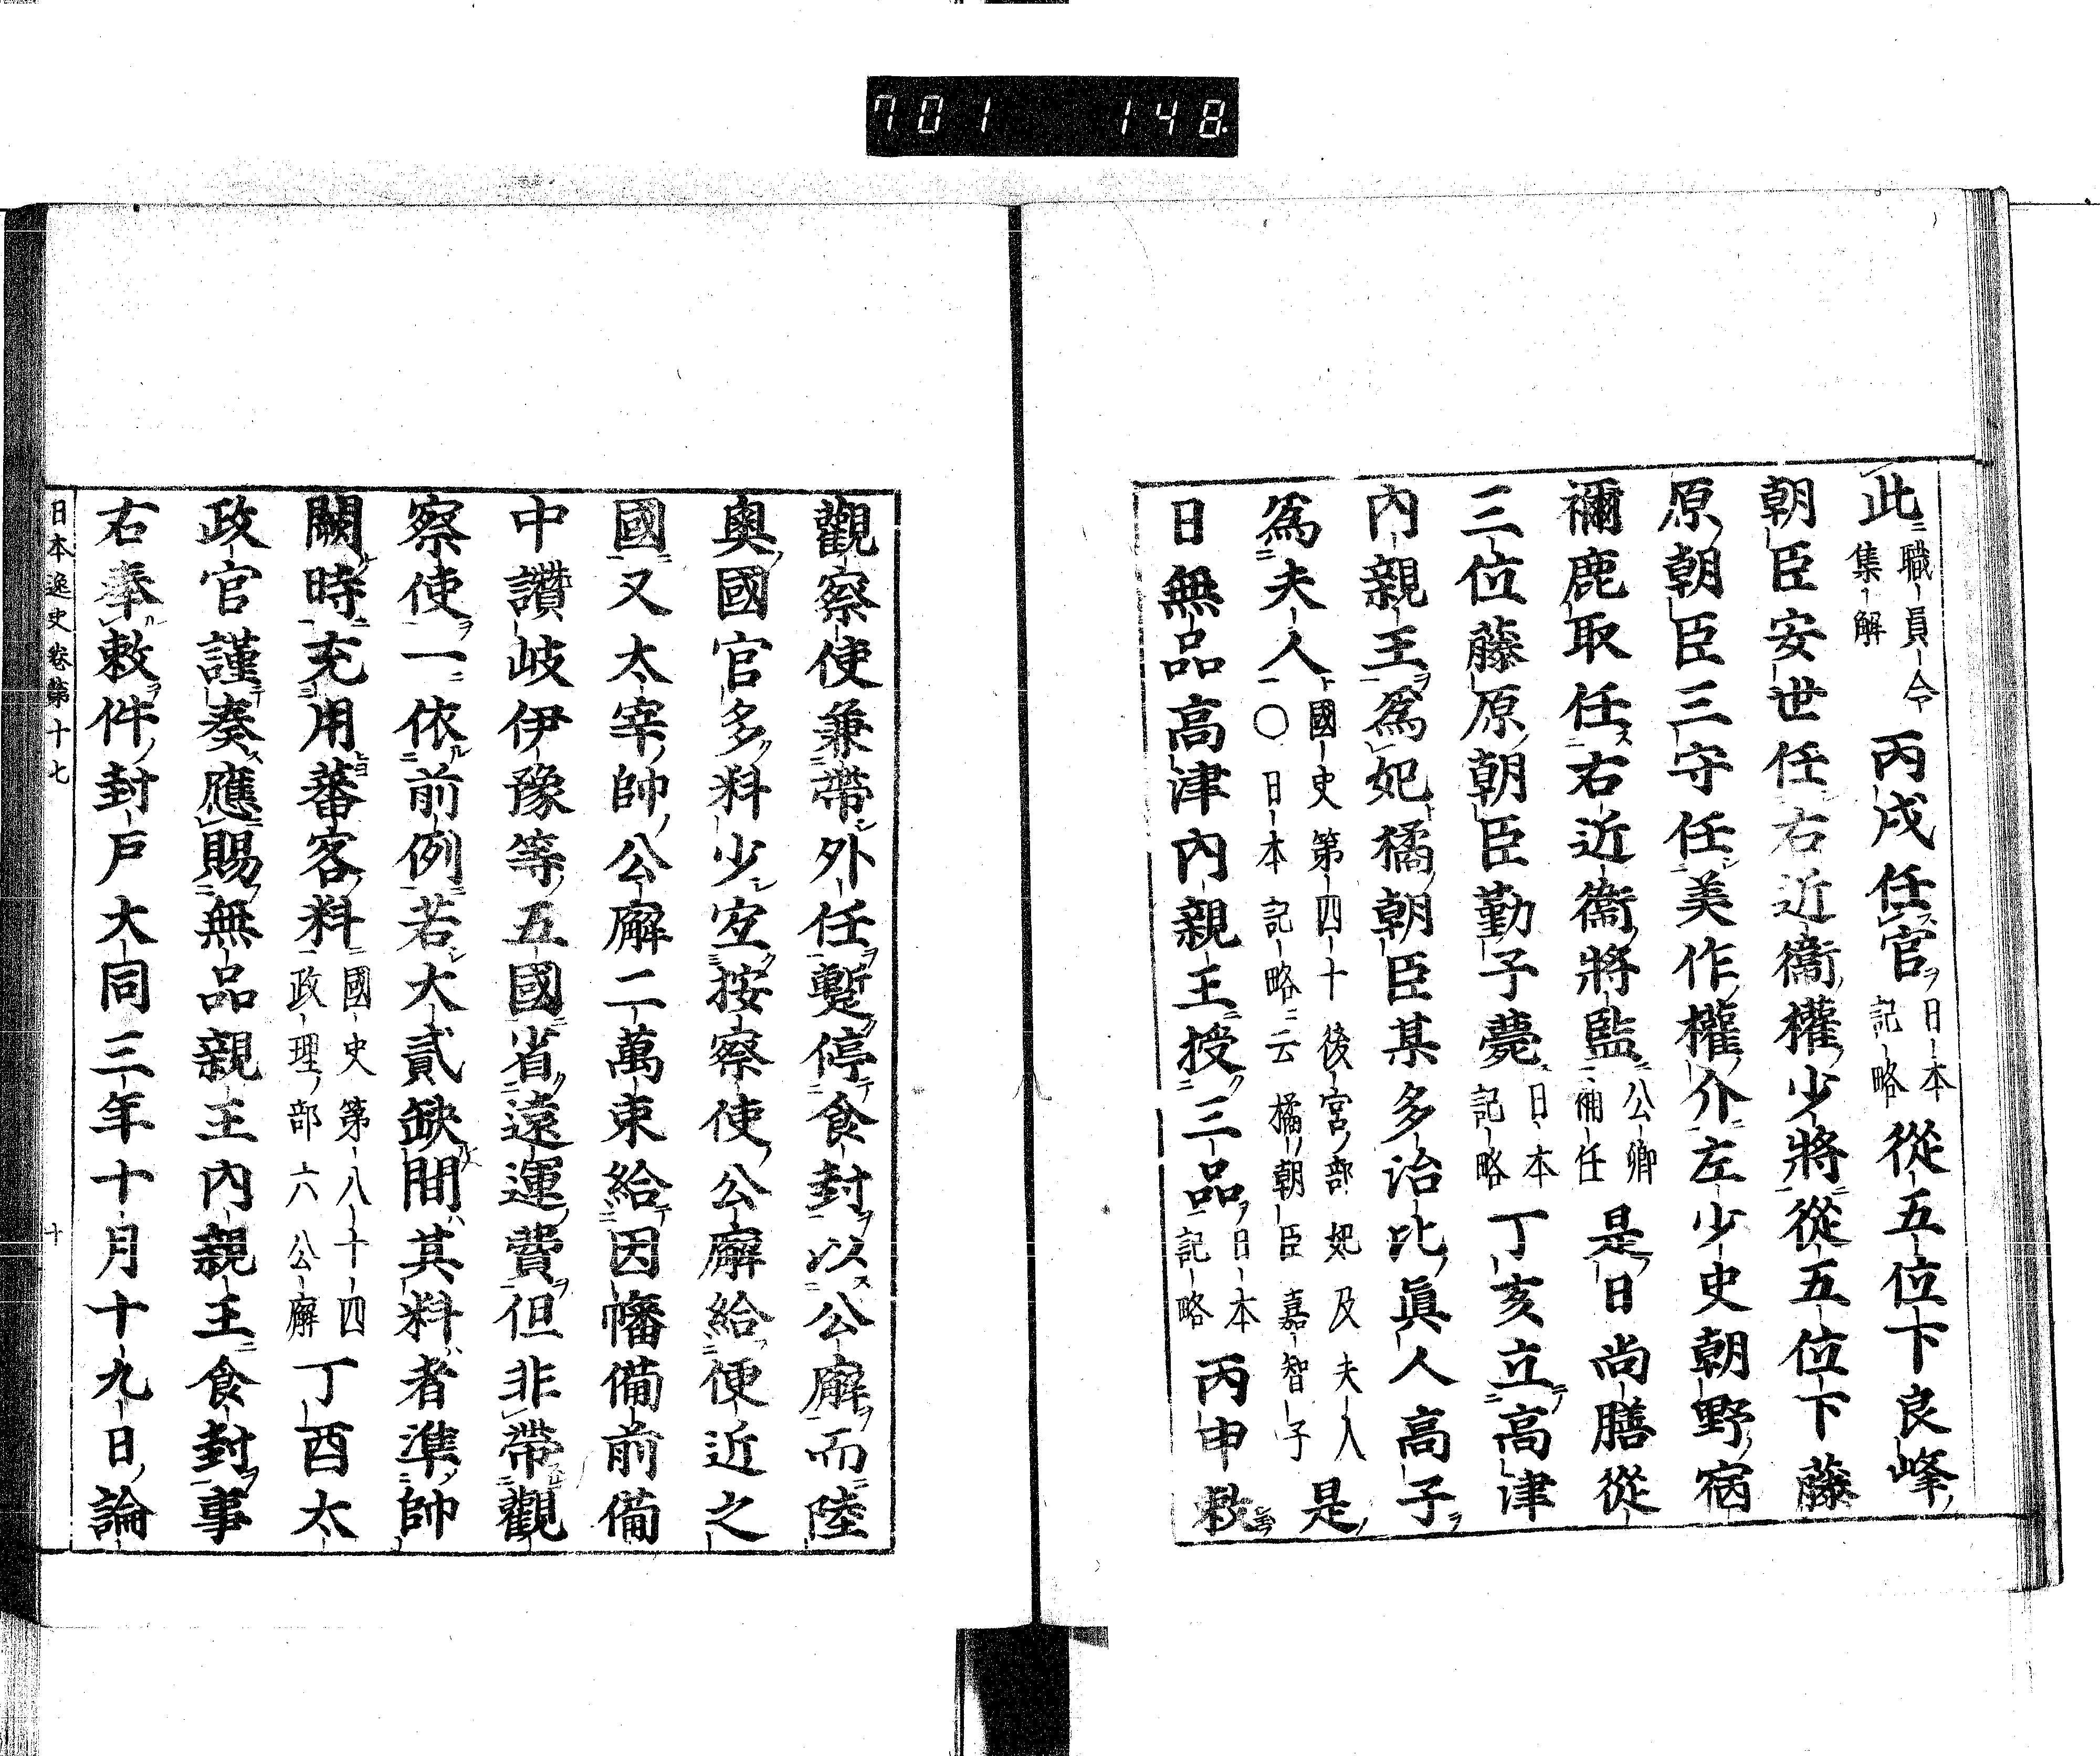 701 148
此職員令集解丙戌任官日本記略從五位下良峰
朝臣安世任右近衞權少將從五位下藤
原朝臣三守任美作權介左少史朝野宿
禰鹿取任右近衞將監公卿補任是日尚膳從
三位藤原朝臣勤子薨日本記略丁亥立高津
內親王爲妃橘朝臣某多治比眞人高子
爲夫人國史第四十後宮部妃及夫人〇日本記略云橘朝臣嘉智子是
日無品高津內親王授三品日本記略丙申敕
觀察使兼帶外任蹔停食封以公廨而陸
奥國官多料少宐按察使公廨給便近之
國又太宰帥公廨二萬束給因幡備前備
中讚岐伊豫等五國省遠運費但非帶觀
察使一依前例若大貳缺間其料者準帥
闕時充用蕃客料國史第八十四政理部六公廨丁酉太
政官謹奏應賜無品親王內親王食封事
右奉敕件封戶大同三年十月十九日論
日本逸史卷第十七 十